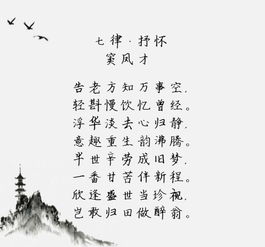 七律·抒怀
窦风才
告老方知万事空，
轻斟慢饮忆曾经。
浮华淡去心归静，
意趣重生韵沸腾。
半世辛劳成旧梦，
一番甘苦伴新程。
欣逢盛世当珍视，
岂敢归田做醉翁。